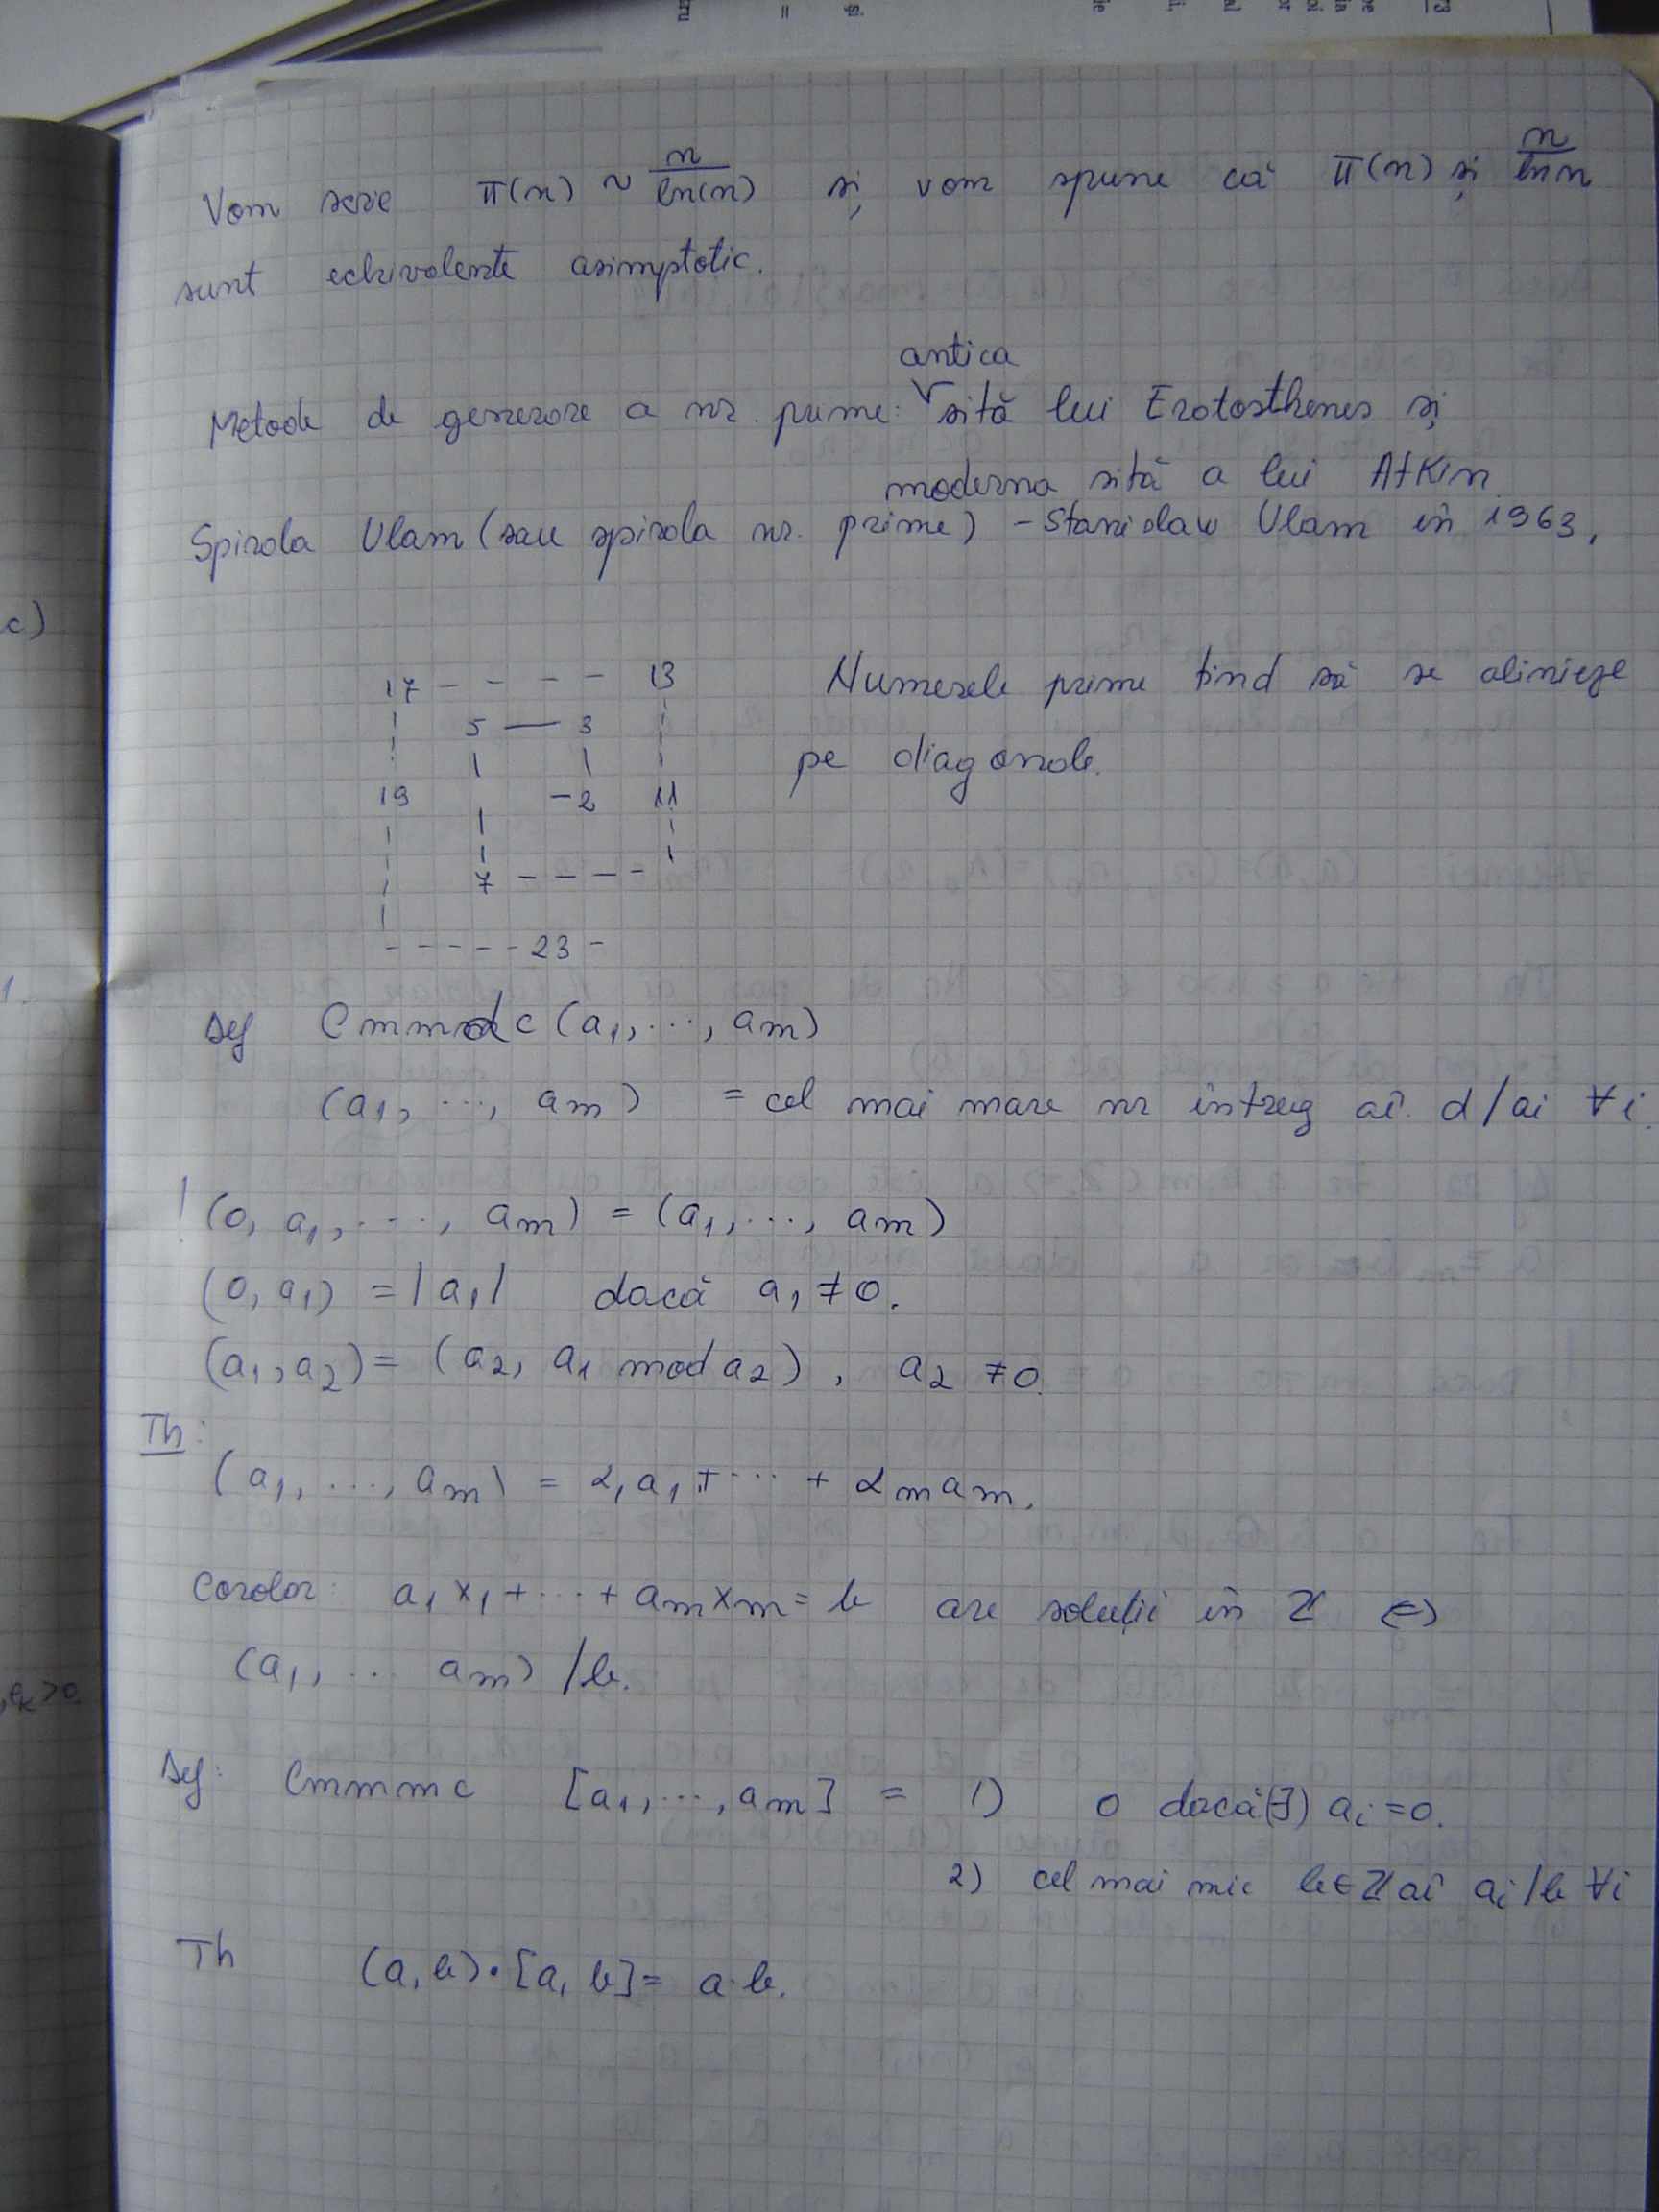 Vom scrie π(n) ~ n/ln(n) și vom spune că π(n) și n/ln n
sunt echivalente asimptotic.
antica
Metode de generare a nr. prime: sită lui Erotosthenes și
moderna sită a lui Atkin.
Spirala Ulam (sau spirala nr. prime) - Stanislaw Ulam în 1963.
17 - - - - 13
5 — 3
19 - 2 11
7 - - - -
- - - - - 23 -
Numerele prime tind să se alinieze
pe diagonale.
Def Cmmdc (a1, ..., am)
(a1, ..., am) = cel mai mare nr întreg aî. d/ai ∀i.
! (0, a1, ..., am) = (a1, ..., am)
(0, a1) = |a1| dacă a1 ≠ 0.
(a1, a2) = (a2, a1 mod a2), a2 ≠ 0.
Th:
(a1, ..., am) = α1a1 + ... + αmam.
Corolar: a1x1 + ... + amxm = b are soluții în ℤ ⇔
(a1, ... am) /b.
Def: Cmmmc [a1, ..., am] = 1) 0 dacă (∃) ai = 0.
2) cel mai mic b∈ℤ aî ai/b ∀i
Th (a, b)·[a, b] = a·b.
c)
1.
,ek>0.